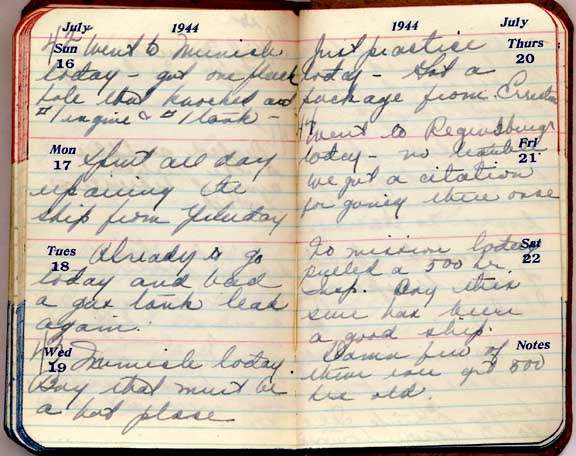 July 1944
Sun
16
42 Went to Munich
today - got one flack
hole that knocked out
#1 engine & #1 tank -
Mon
17
Spent all day
repairing the
ship from yesterday
Tues
18
Already to go
today and had
a gas tank leak
again.
Wed
19
Munich today
Boy that must be
a hot place
1944 July
Thurs
20
Just practice
today - Got a
package from
Fri
21
Went to Regensburg
today - no
we got a citation
for going there once
Sat
22
No mission today
pulled a 500 hr.
insp. on
sure has been
a good ship.
Notes
Damn few of
them ever get 500
hrs old.